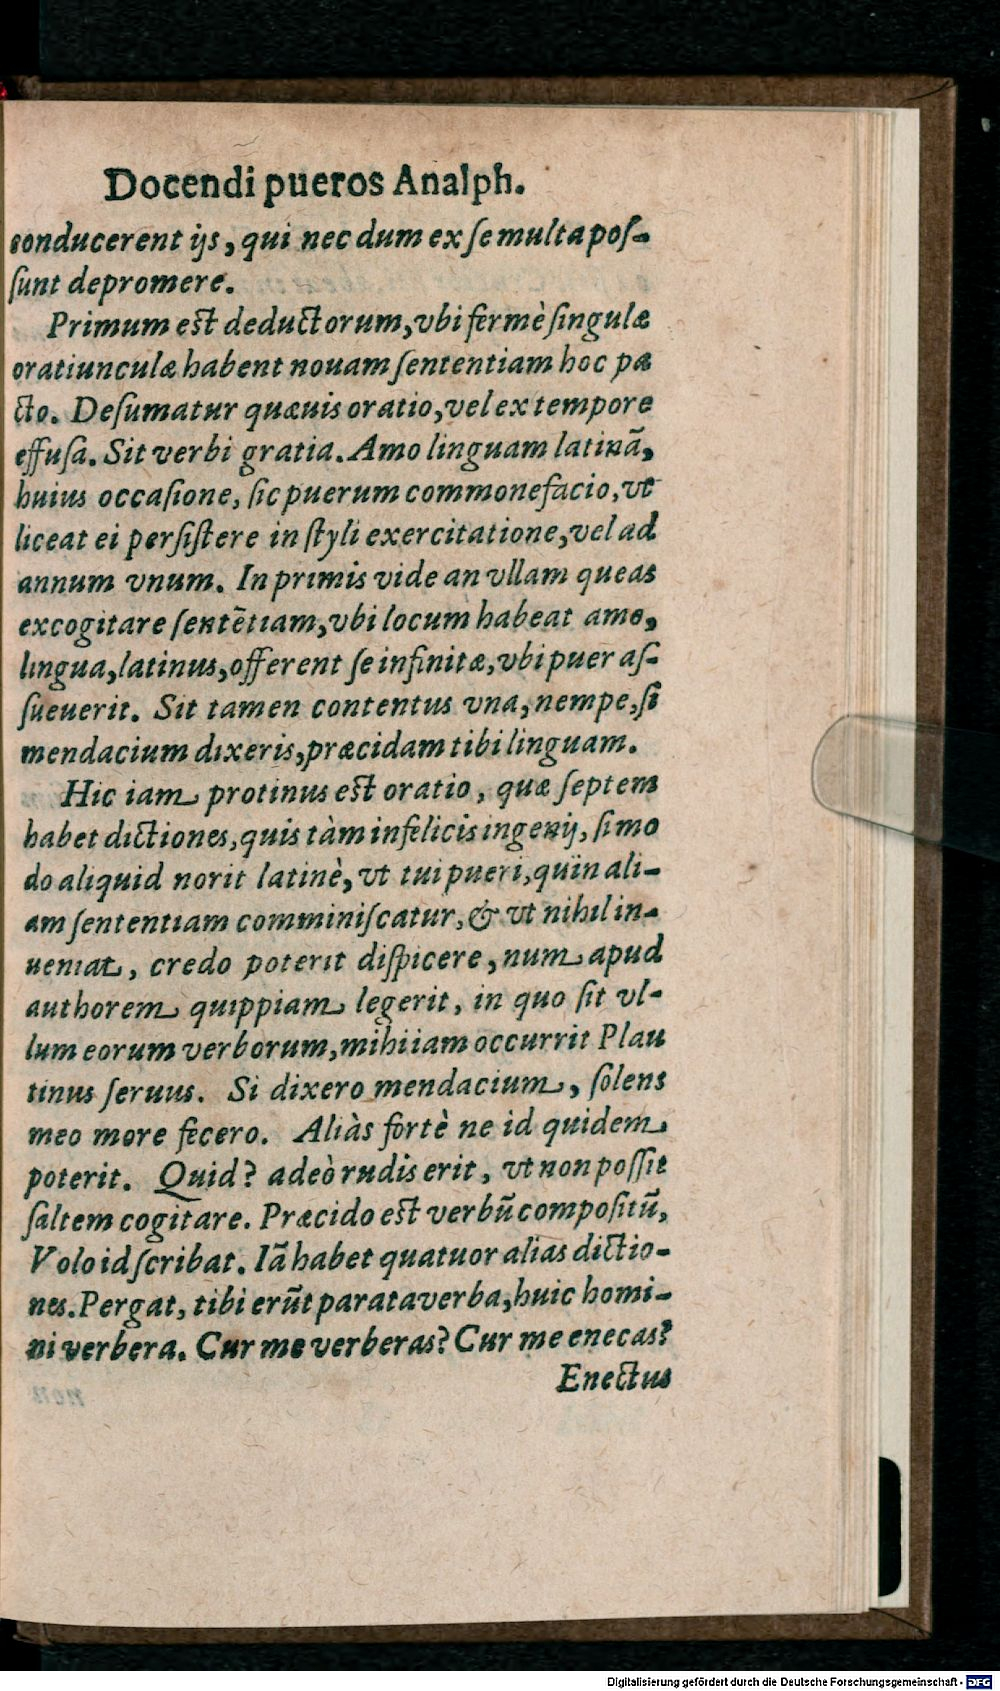 Docendi pueros Analph.
conducerent ijs, qui nec dum ex ſe multa poſ-
ſunt depromere.
Primum est deductorum, vbi fermè ſingulæ
oratiunculæ habent nouam ſententiam hoc pa
cto. Deſumatur quæuis oratio, vel ex tempore
effuſa. Sit verbi gratia. Amo linguam latinā,
huius occaſione, ſic puerum commonefacio, vt
liceat ei perſiſtere in ſtyli exercitatione, vel ad
annum vnum. In primis vide an vllam queas
excogitare ſentētiam, vbi locum habeat amo,
lingua, latinus, offerent ſe infinitæ, vbi puer aſ-
ſueuerit. Sit tamen contentus vna, nempe, ſi
mendacium dixeris, præcidam tibi linguam.
Hic iam protinus est oratio, quæ ſeptem
habet dictiones, quis tàm infelicis ingenij, ſi mo
do aliquid norit latinè, vt tui pueri, quin ali-
am ſententiam comminiſcatur, & vt nihil in-
ueniat, credo poterit diſpicere, num apud
authorem quippiam legerit, in quo ſit vl-
lum eorum verborum, mihi iam occurrit Plau
tinus ſeruus. Si dixero mendacium, ſolens
meo more fecero. Aliàs fortè ne id quidem
poterit. Quid? adeò rudis erit, vt non poſſit
ſaltem cogitare. Præcido est verbū compoſitū,
Volo id ſcribat. Iā habet quatuor alias dictio-
nes. Pergat, tibi erūt parata verba, huic homi-
ni verbera. Cur me verberas? Cur me enecas?
Enectus
Digitalisierung gefördert durch die Deutsche Forschungsgemeinschaft - DFG